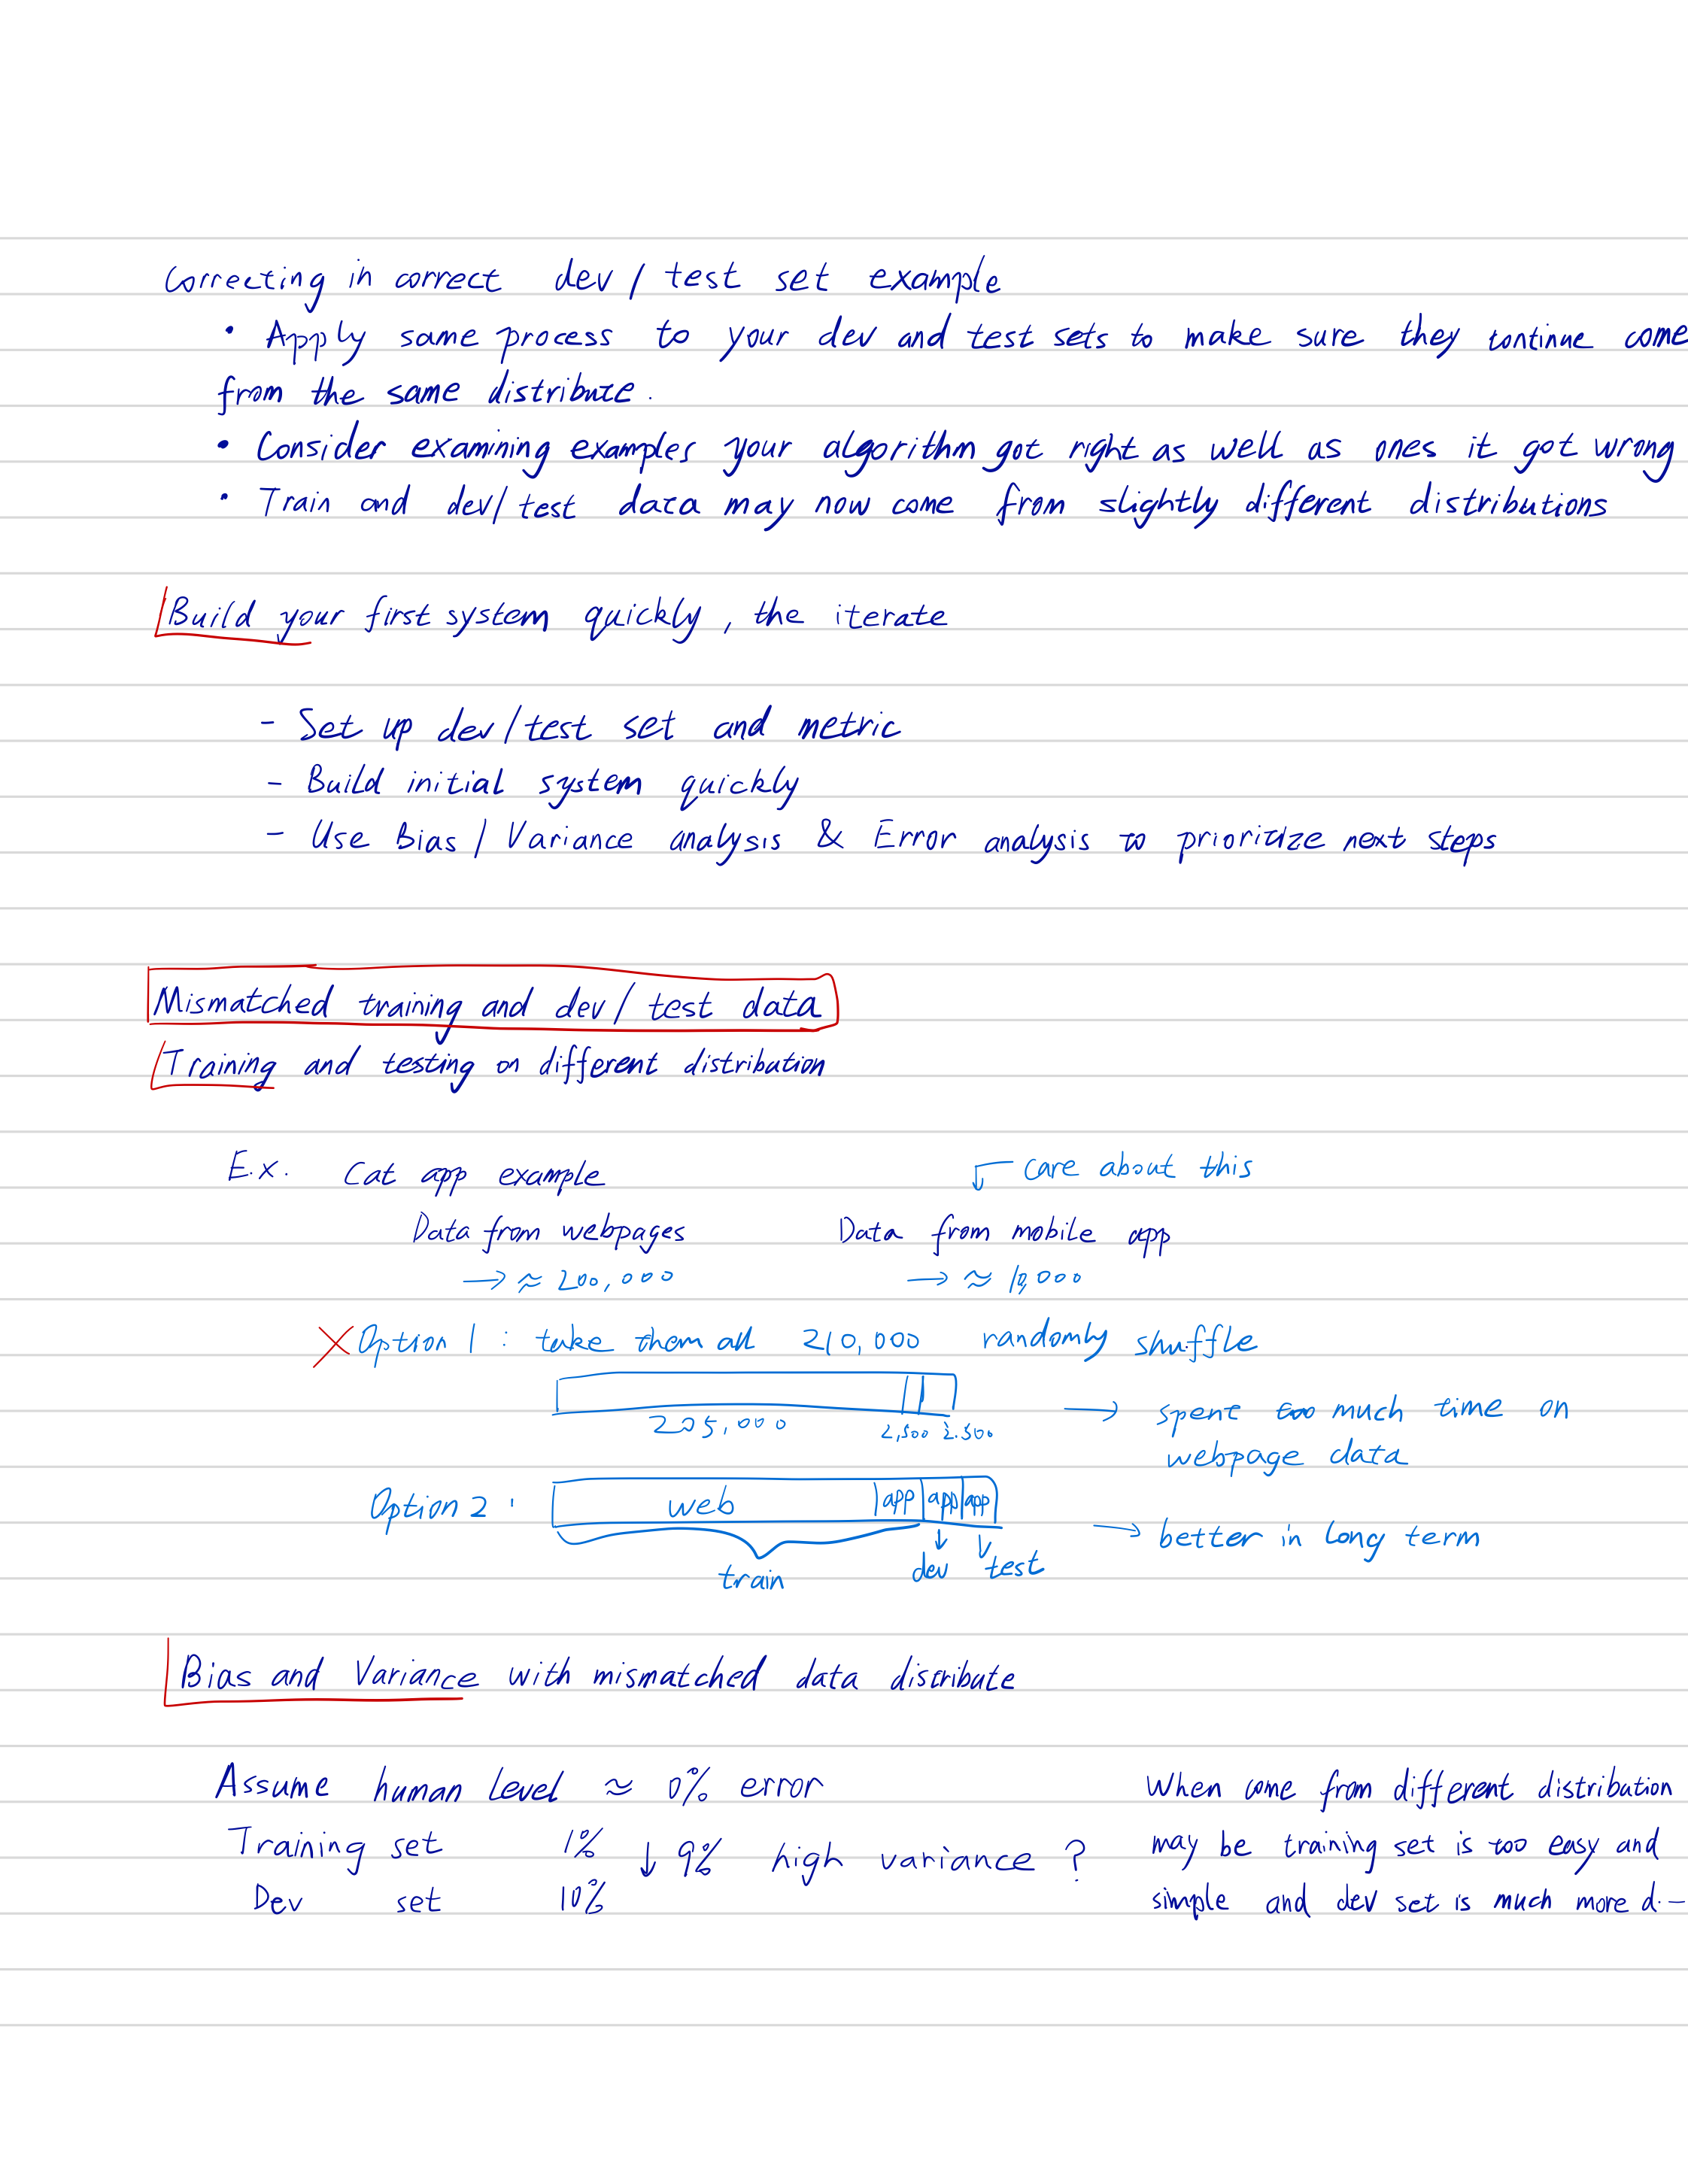 Correcting in correct dev / test set example
• Apply same process to your dev and test sets to make sure they continue come
from the same distribute.
• Consider examining examples your algorithm got right as well as ones it got wrong
• Train and dev/test data may now come from slightly different distributions
Build your first system quickly, the iterate
- Set up dev/test set and metric
- Build initial system quickly
- Use Bias / Variance analysis & Error analysis to prioritize next steps
Mismatched training and dev/ test data
Training and testing on different distribution
E.x. Cat app example
care about this
Data from webpages Data from mobile app
→ ≈ 200,000 → ≈ 10,000
X Option 1 : take them all 210,000 randomly shuffle
205,000 2,500 2.500
→ spent too much time on
webpage data
Option 2 : web app app app
→ better in long term
train dev test
Bias and Variance with mismatched data distribute
Assume human level ≈ 0% error
Training set 1% ↓ 9% high variance ?
Dev set 10%
When come from different distribution
may be training set is too easy and
simple and dev set is much more d.-